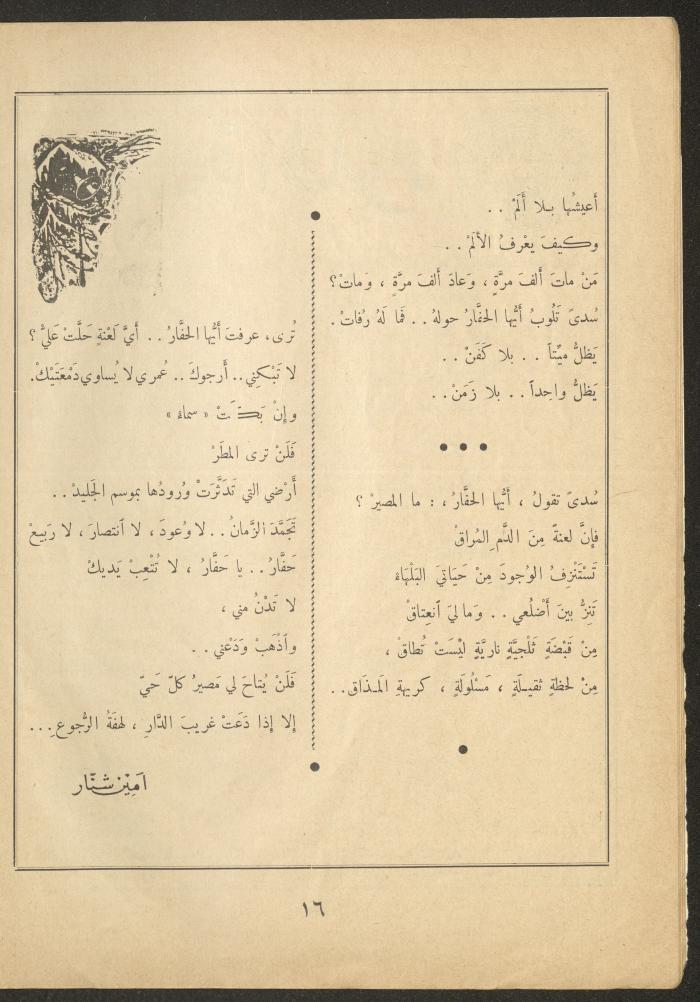 أَعيشُها بـلا أَلَمْ . .
وكيفَ يعْرفُ الأَلمْ . .
مَنْ ماتَ أَلفَ مرَّةٍ ، وَعادَ أَلفَ مرَّةٍ ، وَماتْ؟
سُدىً تَلُوبُ أَيُّها الحَفَّارُ حولهُ . . فَما لَهُ رُفات .
يَظلُّ ميِّتاً . . بلا كَفَنْ . .
يَظلُّ واحِداً . . بلا زَمَنْ . .
سُدىً تقولُ ، أَيُّها الحَفَّارُ ، : ما المصيرْ ؟
فإنَّ لعنةً مِنَ الدَّمِ المُراقْ
تَسْتَنْزِفُ الوُجودَ مِنْ حَيَاتيَ البَلْهَاءْ
تَنِزُّ بينَ أَضْلُعي . . وَمالـيَ اَنعِتاقْ
مِنْ قَبْضَةٍ ثَلْجيَّةٍ ناريَّةٍ ليْسَتْ تُطاقْ ،
مِنْ لحظةٍ ثقيـلَةٍ ، مَسْلُولَةٍ ، كريهةِ المَـذاق . .
تُرى، عرفتَ أَيُّها الحَفَّارُ . . أَيَّ لَعْنةٍ حَلَّتْ عَليَّ ؟
لا تَبْكِني . . أَرجوكَ . . عُمري لا يُساوي دَمْعَتَيْكْ.
وإنْ بَكَتْ « سماءُ »
فَلَنْ ترى المطَرْ
أَرْضي التي تَدَثَّرَتْ وُرودُها بموسم الجَليدْ . .
تَجَمَّدَ الزَّمانُ . . لا وُعودَ ، لا اَنتصارَ ، لا رَبيـعْ
حَفَّارُ . . يا حَفَّارُ ، لا تُتْعِبْ يَديكْ
لا تَدْنُ مني ،
واَذْهَبْ وَدَعْني . .
فَلَنْ يُتاحَ لي مَصيرُ كلِّ حَيّ
إلا إذا دَعَتْ غريبَ الدَّارِ ، لهفَةُ الرُّجوعِ . . .
امين شنّار
١٦